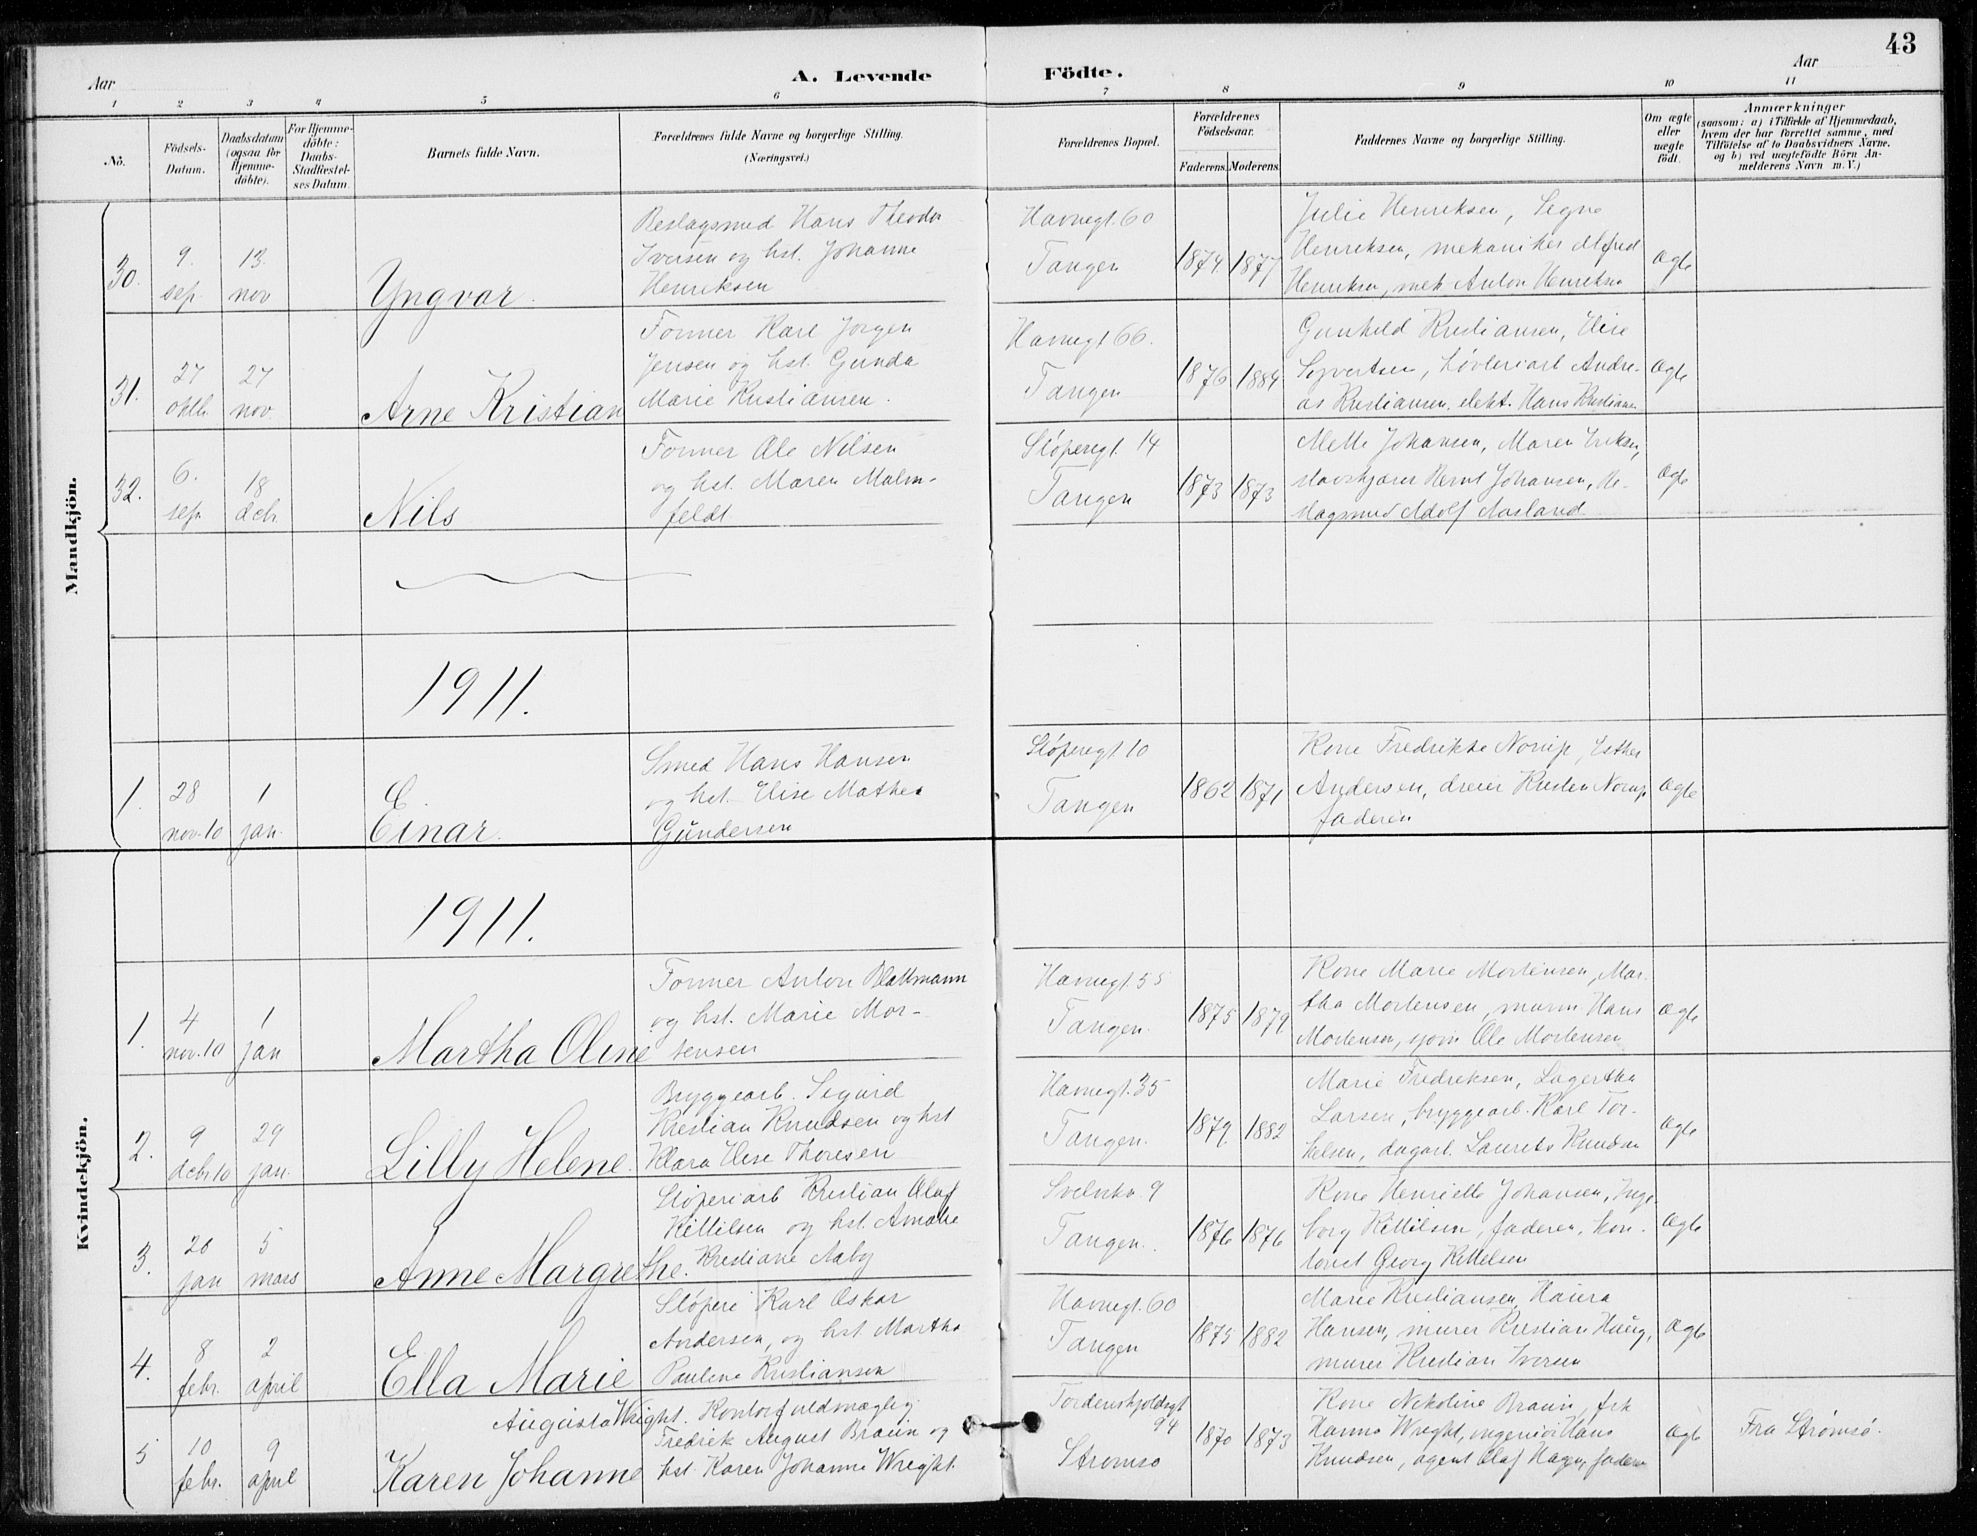 43
Aar
A. Levende Födte.
Aar
1 2 3 4 5 6 7 8 9 10 11
No.
Födsels-Datum.
Daabsdatum (ogsaa for Hjemmedöbte).
For Hjemmedöbte: Daabs-Stadfestelses Datum.
Barnets fulde Navn.
Forældrenes fulde Navne og borgerlige Stilling.
(Næringsvei.)
Forældrenes Bopæl.
Forældrenes Födselsaar.
Faderens. Moderens.
Faddernes Navne og borgerlige Stilling.
Om ægte eller uægte födt.
Anmærkninger
(saasom: a) i Tilfælde af Hjemmedaab,
hvem der har forrettet samme, med
Tilföielse af to Daabsvidners Navne.
og b) ved uægtefödte Börn An-
melderens Navn m. V.)
Mandkjön.
30. 9. sep. 13. nov Yngvar.
Beslagsmed Hans Theodor
Iversen og hst. Johanne
Henriksen
Havnegt. 60
Tangen
1874 1877
Julie Henriksen, Signe
Henriksen, mekaniker Alfred
Henriksen, mek Anton Henriksen
ægte
31. 27 oktb. 27 nov. Arne Kristian
Former Karl Jørgen
Jensen og hst. Gunda
Marie Kristiansen.
Havnegt 66.
Tangen
1876 1884
Gunhild Kristiansen, Elise
Syvertsen, høvleriarb Andre-
as Kristiansen, elekt. Hans Kristiansen
ægte
32. 6. sep. 18 dcbr Nils
Former Ole Nilsen
og hst. Maren Malm-
feldt
Støperigt. 14
Tangen
1873 1873
Mette Johansen, Maren Eriksen,
stavskjærer Bernt Johansen, Be-
slagsmed Adolf Aasland
ægte
1911.
1. 28 nov. 10 1 jan. Einar.
Smed Hans Hansen
og hst. Elise Mathea
Gundersen
Støperigt 10
Tangen
1862 1871
Kone Fredrikke Norup, Esther
Andersen, dreier Kristen Norup
faderen
ægte
Kvindekjön.
1911.
1. 4 nov. 10 1 jan Martha Oline
Former Anton Blattmann
og hst. Marie Mor-
tensen
Havnegt. 55
Tangen.
1875 1879
Kone Marie Mortensen, Mar-
tha Mortensen, murm Hans
Mortensen, sjøm Ole Mortensen
ægte
2. 9 dcbr 10 29 jan. Lilly Helene.
Bryggearb. Sigurd
Kristian Knudsen og hst
Klara Elise Thoresen
Havnegt. 35
Tangen.
1879 1882
Marie Fredriksen, Lagertha
Larsen, bryggearb. Karl Tor-
kelsen, dagarb. Laurits Knudsen
ægte
3. 20 jan 5 mars Anne Margrethe.
Støperiarb Kristian Olaf
Kittilsen og hst. Amalie
Kristiane Aaby
Svelvikv. 9
Tangen.
1876 1876
Kone Henriette Johansen, Inge-
borg Kittilsen, faderen, kon-
torist Georg Kittelsen
ægte
4. 8 febr. 2 april Ella Marie
Støperi Karl Oskar
Andersen, og hst Martha
Pauline Kristiansen
Havnegt. 60
Tangen
1875 1882
Marie Kristiansen, Haura
Hansen, murer Kristian Haug,
murer Kristian Iversen
ægte
5 10 febr. 9 april Karen Johanne
Augusta Wright.
Kontorfuldmægtig
Fredrik August Braun og
hst. Karen Johanne Wright.
Tordenskjoldsgt
94
Strømsø
1870 1873
Kone Nikoline Braun, frk
Hanna Wright, ingeniør Hans
Knudsen, agent Olaf Hagen, faderen
ægte
Fra Strømsø.